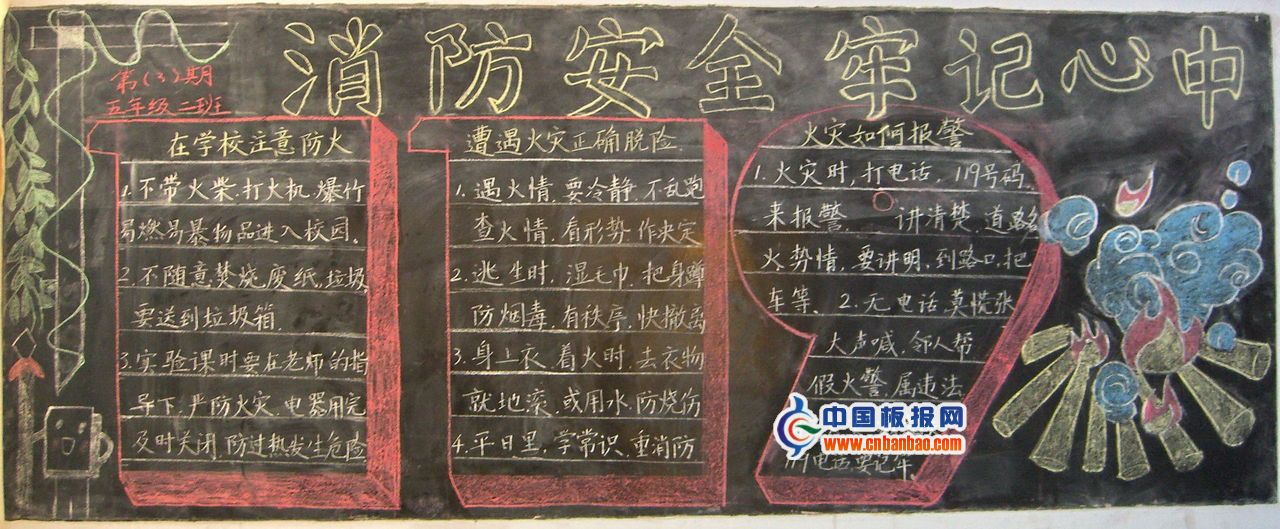 消防安全牢记心中
第(3)期
五年级二班
在学校注意防火
1.不带火柴.打火机.爆竹
易燃易暴物品进入校园。
2.不随意焚烧废纸,垃圾
要送到垃圾箱.
3.实验课时要在老师的指
导下,严防火灾,电器用完
及时关闭,防过热发生危险
遭遇火灾正确脱险
1.遇火情,要冷静,不乱跑
查火情,看形势,作决定
2.逃生时,湿毛巾,把身蹲
防烟毒,有秩序,快撤离
3.身上衣,着火时,去衣物
就地滚,或用水,防烧伤
4.平日里,学常识,重消防
火灾如何报警
1.火灾时,打电话,119号码.
来报警. 讲清楚,道路名
火势情,要讲明,到路口,把
车等、2.无电话,莫慌张
大声喊,邻人帮
假火警,属违法
中国板报网
www.cnbanbao.com
119电话要记牢